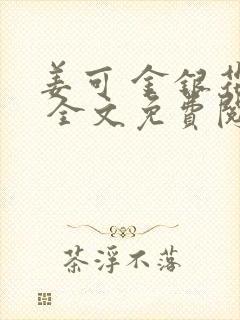 姜可 金银花
全文免費閱
茶浮不落